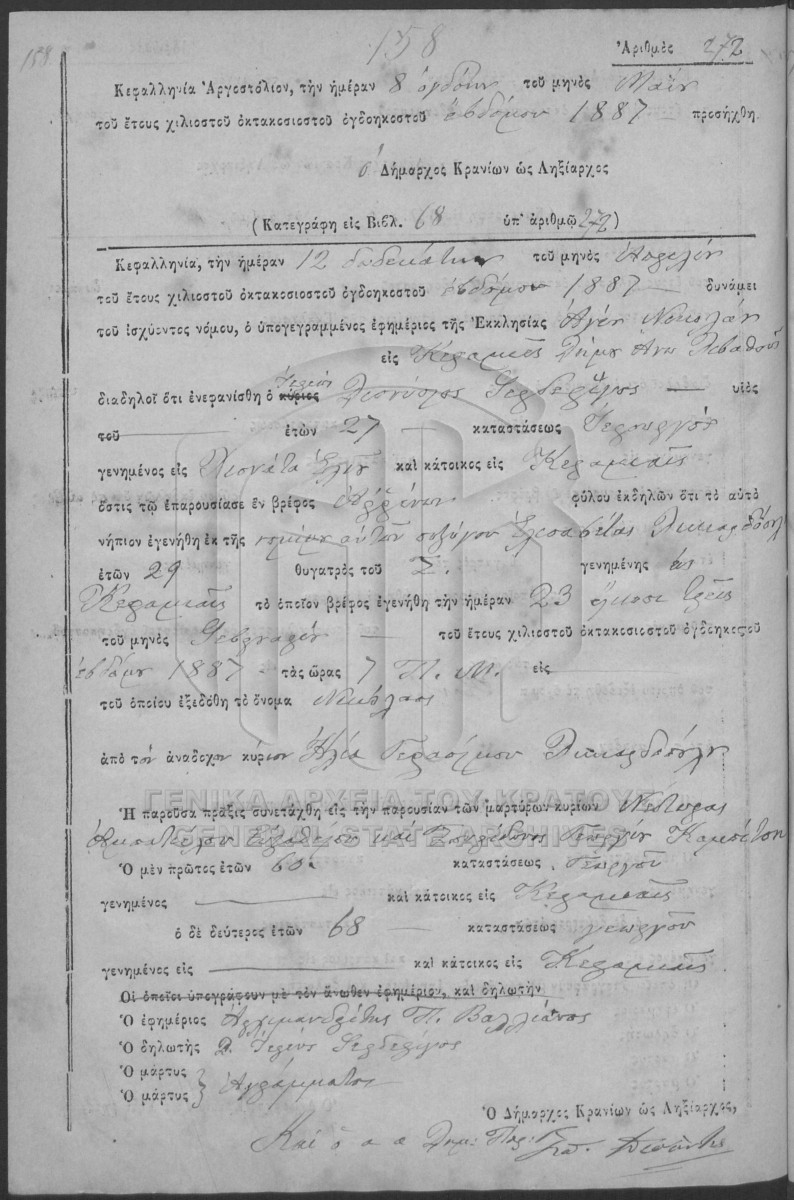 158
158
Ἀριθμὸς 272
Κεφαλληνία Ἀργοστόλιον, τὴν ἡμέραν 8 ὀγδόην τοῦ μηνὸς Μαΐου
τοῦ ἔτους χιλιοστοῦ ὀκτακοσιοστοῦ ὀγδοηκοστοῦ ἑβδόμου 1887 — προσήχθη
ὁ Δήμαρχος Κρανίων ὡς Ληξίαρχος
(Κατεγράφη εἰς Βιβλ. 68 ὑπ' ἀριθμῷ 272)
Κεφαλληνία, τὴν ἡμέραν 12 δωδεκάτην τοῦ μηνὸς Ἀπριλίου
τοῦ ἔτους χιλιοστοῦ ὀκτακοσιοστοῦ ὀγδοηκοστοῦ ἑβδόμου 1887 — δυνάμει
τοῦ ἰσχύοντος νόμου, ὁ ὑπογεγραμμένος ἐφημέριος τῆς Ἐκκλησίας Ἁγίου Νικολάου
εἰς Κεραμειὲς Δήμου Ἄνω Λειβαθοῦς
Ἱερεὺς
διαδηλοῖ ὅτι ἐνεφανίσθη ὁ κύριος Διονύσιος — υἱὸς
τοῦ — ἐτῶν 27 — καταστάσεως Ἱερουργός
γενημένος εἰς καὶ κάτοικος εἰς Κεραμειὲς
ὅστις τῷ ἐπαρουσίασε ἓν βρέφος ἀρρένου φύλου ἐκδηλῶν ὅτι τὸ αὐτὸ
νήπιον ἐγενήθη ἐκ τῆς νομίμου αὐτοῦ συζύγου Ἐλισαβέτας
ἐτῶν 29 θυγατρὸς τοῦ Ζ. γενημένης εἰς
Κεραμειὲς τὸ ὁποῖον βρέφος ἐγενήθη τὴν ἡμέραν 23 εἴκοσι τρεῖς
τοῦ μηνὸς Φεβρουαρίου — τοῦ ἔτους χιλιοστοῦ ὀκτακοσιοστοῦ ὀγδοηκοστοῦ
ἑβδόμου 1887 — τὰς ὥρας 7 Π. Μ. εἰς —
τοῦ ὁποίου ἐξεδόθη τὸ ὄνομα Νικόλαος
ἀπὸ τὸν ἀνάδοχον κύριον Ἠλία Γερασίμου
ΓΕΝΙΚΑ ΑΡΧΕΙΑ ΤΟΥ ΚΡΑΤΟΥΣ
Ἡ παροῦσα πρᾶξις συνετάχθη εἰς τὴν παρουσίαν τῶν μαρτύρων κυρίων
GENERAL STATE ARCHIVES
καὶ
Ὁ μὲν πρῶτος ἐτῶν 60 καταστάσεως Γεωργοῦ
γενημένος — καὶ κάτοικος εἰς Κεραμειὲς
ὁ δὲ δεύτερος ἐτῶν 68 — καταστάσεως γεωργοῦ
γενημένος εἰς — καὶ κάτοικος εἰς Κεραμειὲς
Οἱ ὁποῖοι ὑπογράφουν μὲ τὸν ἄνωθεν ἐφημέριον, καὶ δηλωτὴν
Ὁ ἐφημέριος Ἀρχιμανδρίτης Π. Βαλλιάνος
Ὁ δηλωτὴς Δ. Ἱερεὺς
Ὁ μάρτυς
Ὁ μάρτυς } Ἀγράμματοι
Ὁ Δήμαρχος Κρανίων ὡς Ληξίαρχος,